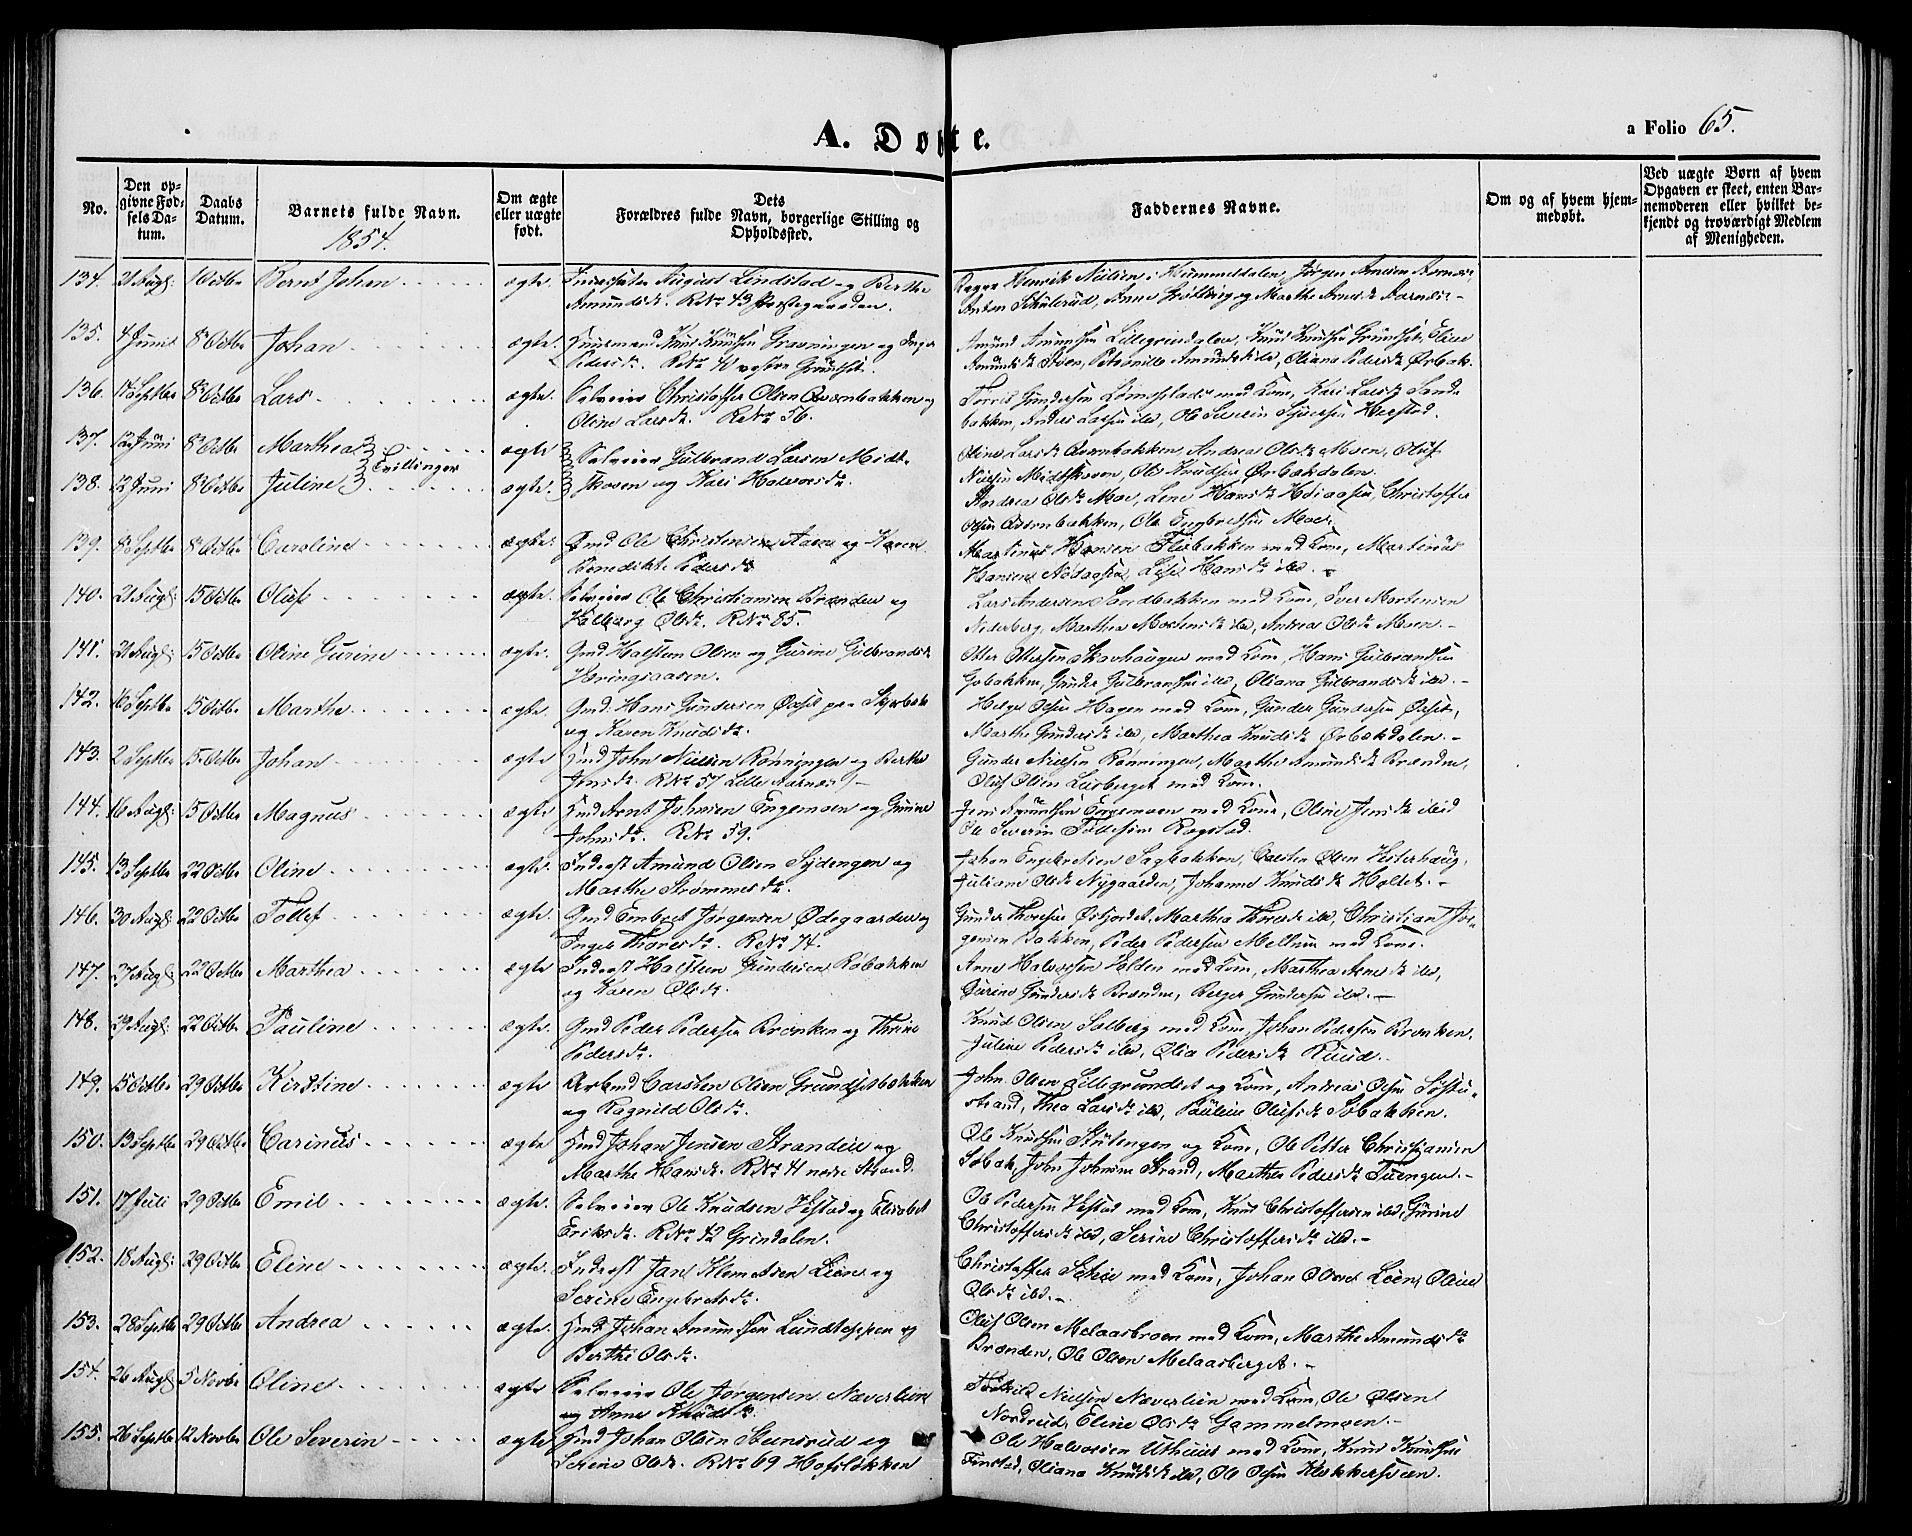 A. Døbte.
a Folio 65.
No.
Den opgivne Fødsels Datum.
Daabs Datum.
Barnets fulde Navn.
1854.
Om ægte eller uægte født.
Dets Forældres fulde Navn, borgerlige Stilling og Opholdssted.
Faddernes Navne.
Om og af hvem hjemmedøbt.
Ved uægte Børn af hvem Opgaven er skeet, enten Barnemoderen eller hvilket bekjendt og troværdigt Medlem af Menigheden.
134. 21 Augl: 1 Octbr Bernt Johan ægte August Lindstad og Berthe
Amundsdr. RNr 43 Præstegaarden.
Henrik Nielsen i Hummeldalen, Jørgen
Anton Skulerud, Anne og Marthe
135. 4 Juni 8 Octbr Johan ægte. Huusmand Knud Knudsen Gravningen og Inger
Pedersdr. RNr 41 vestre Grundset.
Amund Amundsen Lillegrindalen, Knud Knudsen Grundset, Eline
Amundsdr Stuen, Petronille Amundsdr ibd, Oliana Pedersdr Ørbæk.
136. 14 Septbr 8 Octbr Lars ægte. Selveier Christoffer Olsen Qvernbakken og
Oline Larsdr. RNr 56.
Gundersen med Kone, Kari Larsdr Sand-
bakken, Anders Larsen ibd, Ole
137. 12 Juni 8 Octbr Marthea Tvillinger ægte Selveier Gulbrand Larsen Midt-
Oline Larsdr Qvernbakken, Andrea Olsdr Moen, Oluf
138. 12 Juni 8 Octbr Juline ægte. skoven og Kari Halvorsdr.
Nielsen Midtskoven, Ole Knudsen Ørbækdalen.
Andrea Olsdr Moe, Lene Hansdr Christoffer
Olsen Qvernbakken, Ole Moe.
139. 8 Septbr 8 Octbr Caroline ægte. Gmd Ole Christensen Aaen og Karen
Benedikte Pedersdr
Martinus Hansen med Kone, Martinus
Hansen Hansdr ibd.
140. 21 Augl: 15 Octbr Oluf ægte. Selveier Ole Christiansen Brænden og
Olsdr. RNr 85.
Lars Andersen Sandbakken med Kone, Iver Mortensen
Nederberg, Marthea Mortensdr ibd, Andrea Olsdr Moen.
141. 21 Augl: 15 Octbr Oline Gurine ægte. Gmd Halsten Olsen og Gurine Gulbrandsdr
Væringsaasen.
Otter Ottersen Skavhaugen med Kone, Hans Gulbrandsen
Gunder Gulbrandsen ibd, Oliana Gulbrandsdr ibd.
142. 10 Septbr 15 Octbr Marthe ægte Gmd. Hans Gundersen
og Karen Knudsdr.
Helge Olsen Hagen med Kone, Gunder Gundersen
Marthe Gundersdr ibd, Marthea Knudsdr Ørbækdalen.
143. 2 Septbr 15 Octbr Johan ægte Hmd John Nielsen Rønningen og Berthe
Jensdr. RNr 57 Lille Aarnæs
Gunder Nielsen Rønningen, Marthe Amundsdr Brænden,
Oluf Olsen med Kone.
144. 16 Augl: 15 Octbr Magnus ægte. Hmd Arnt Johnsen Engemoen og Gurine
Johnsdr. RNr 59.
Jens Amundsen Engemoen med Kone, Oline Jensdr ibid
Ole Severin Tollefsen Rogstad.
145. 13 Septbr 22 Octbr Oline ægte. Inderst Amund Olsen Sydengen og
Marthe Strømmesdr.
Johan Engebretsen Sagbakken, Carsten Olsen Vesterhaug,
Juliane Olsdr Nygaarden, Johanne Knudsdr Holtet.
146. 30 Augl: 22 Octbr Tollef ægte. Gmd Embret Jørgensen Ødegaarden og
Inger Thoresdr. RNr 74.
Gunder Thoresen Marthea Thoresdr ibd, Christian Jør-
gensen Bakken, Peder Pedersen Mellum med Kone.
147. 27 Augl: 22 Octbr Marthea ægte Inderst Halsteen Gundersen Robakken
og Karen Olsdr.
Arne Halvorsen Holden med Kone, Marthea Arnesdr ibd,
Gurine Gundersdr Brænden, Berger Gundersen ibd.
148. 29 Augl: 22 Octbr Pauline ægte. Gmd Peder Pedersen Brænken og Thrine
Pedersdr.
Knud Olsen Solberg med Kone, Johan Pedersen Brænken,
Juline Pedersdr ibd, Olia Pedersdr Ruud.
149. 15 Octbr 29 Octbr Kirstine ægte Arbmd Carsten Olsen Grundsetbakken
og Ragnild Olsdr.
John Olsen Lillegrundset og Kone, Andreas Olsen
strand, Thea Larsdr ibd, Pauline Olufsdr Søbakken.
150. 13 Septbr 29 Octbr Carinus ægte Hmd Johan Jensen Strandlie og
Marthe Hansdr. RNr 4 nedre Strand.
Ole Knudsen Slutengen og Kone, Ole Petter Christiansen
Søbak, John Johnsen Strand, Marthea Pedersdr Tuengen.
151. 17 Juli 29 Octbr Emil ægte. Selveier Ole Knudsen Vestad og Elisabet
Eriksdr. RNr 42 Grindalen.
Ole Pedersen Vestad med Kone, Knud Christoffersen ibd, Gurine
Christoffersdr ibd, Serine Christoffersdr ibd.
152. 18 Augl: 29 Octbr Eline ægte. Inderst Jan Klemetsen Lien og
Serine Engebretsdr.
Christoffer med Kone, Johan Olsen Lien, Oline
Olsdr ibd.
153. 28 Septbr 29 Octbr Andrea ægte. Hmd Johan Amundsen Lundtoppen og
Berthe Olsdr.
Oluf Olsen Melaasbroen med Kone, Marthe Amundsdr
Brænden, Ole Olsen Melaasberget.
154. 26 Augl: 5 Novbr Oline ægte Selveier Ole Jørgensen Næverlien
og Anne Knudsdr.
Nielsen Næverlien med Kone, Ole Olsen
Nordrud, Eline Olsdr Gammelmoen.
155. 26 Septbr 12 Novbr Ole Severin ægte Hmd Johan Olsen Steinsrud og
Serine Olsdr. RNr 69 Hofsløkken
Ole Halvorsen Uthuus med Kone, Knud Knudsen
Finstad, Oliana Knudsdr ibd, Ole Olsen Klokkerstuen.